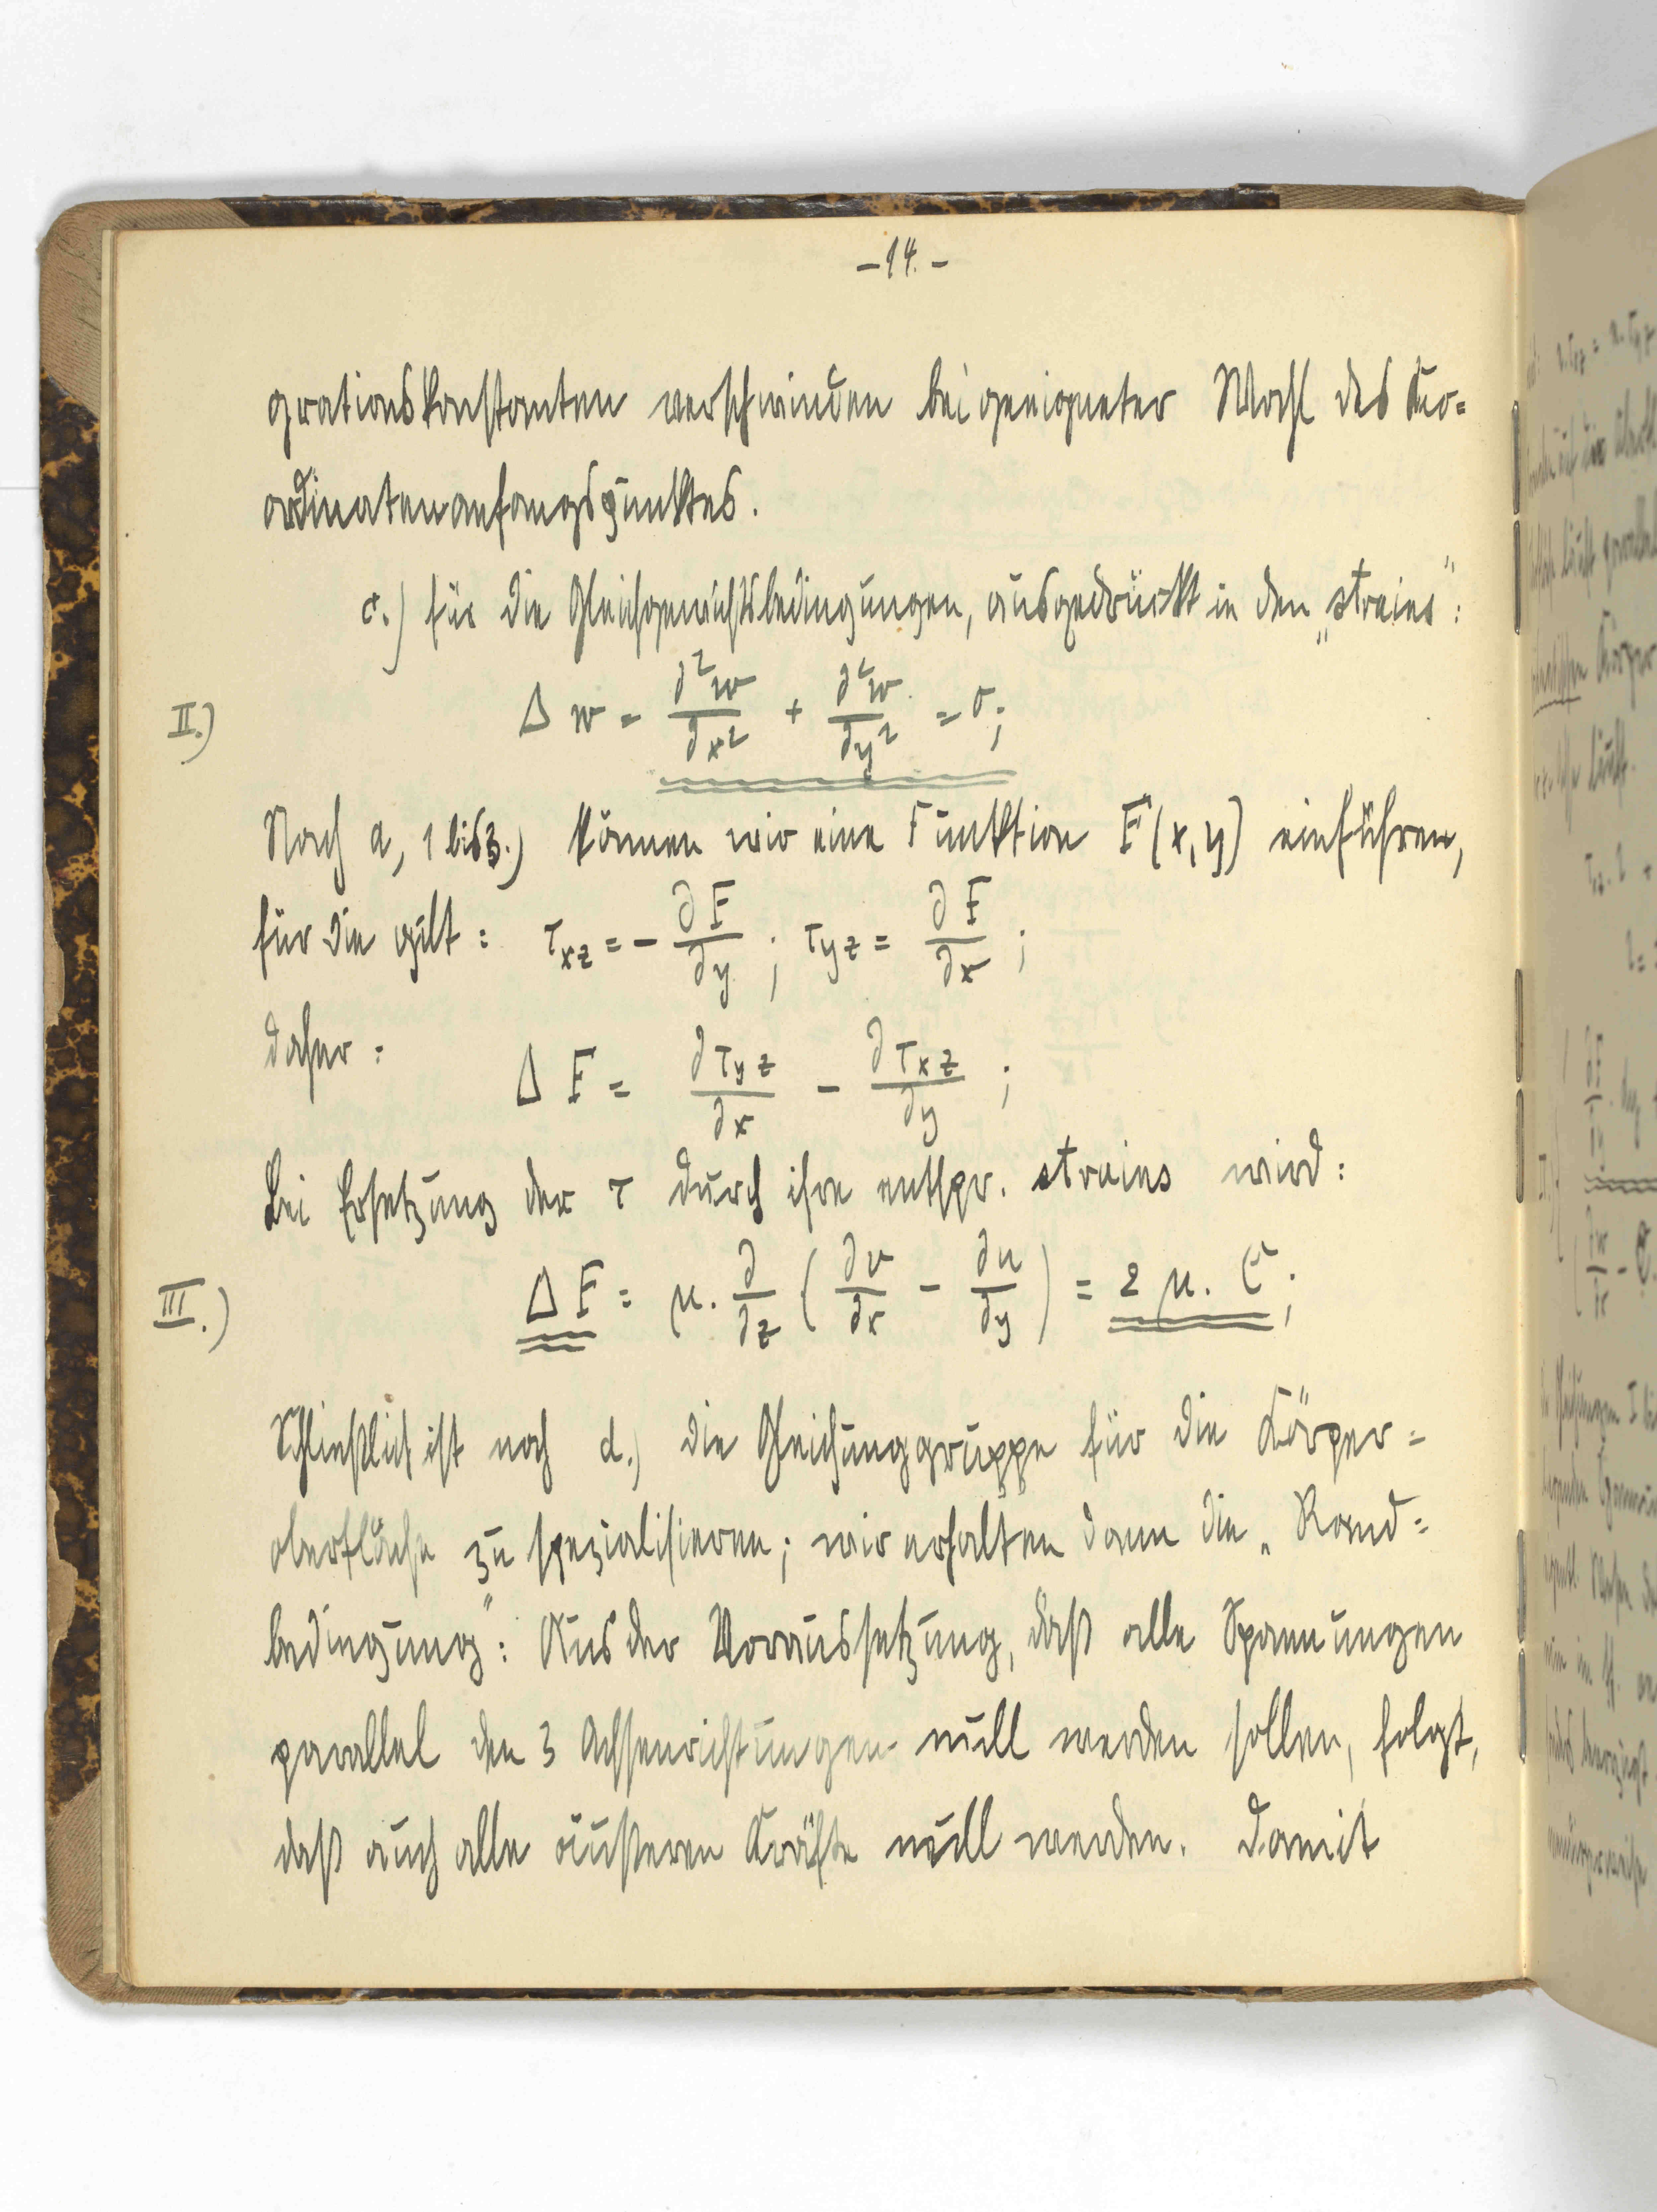 -14.-
grationskonstanten verschwinden bei geeigneter Wahl des Ko=
ordinatenanfangspunktes.
c.) für die Gleichgewichtsbedingungen, ausgedrückt in den „strains":
II.) Δ w = ∂²w/∂x² + ∂²w/∂y² = 0;
Nach a, 1 bis 3.) können wir eine Funktion F(x, y) einführen,
für die gilt: τxz = - ∂F/∂y ; τyz = ∂F/∂x ;
daher:
Δ F = ∂τyz/∂x - ∂τxz/∂y ;
Bei Ersetzung der τ durch ihre entspr. strains wird:
III.) Δ F = μ. ∂/∂z (∂v/∂x - ∂u/∂y) = 2 μ. C;
Schließlich ist noch d.) die Gleichunggruppe für die Körper=
oberfläche zu spezialisieren; wir erhalten dann die „Rand=
bedingung": Aus der Voraussetzung, daß alle Spannungen
parallel den 3 Achsenrichtungen null werden sollen, folgt,
daß auch alle äußeren Kräfte null werden. Damit